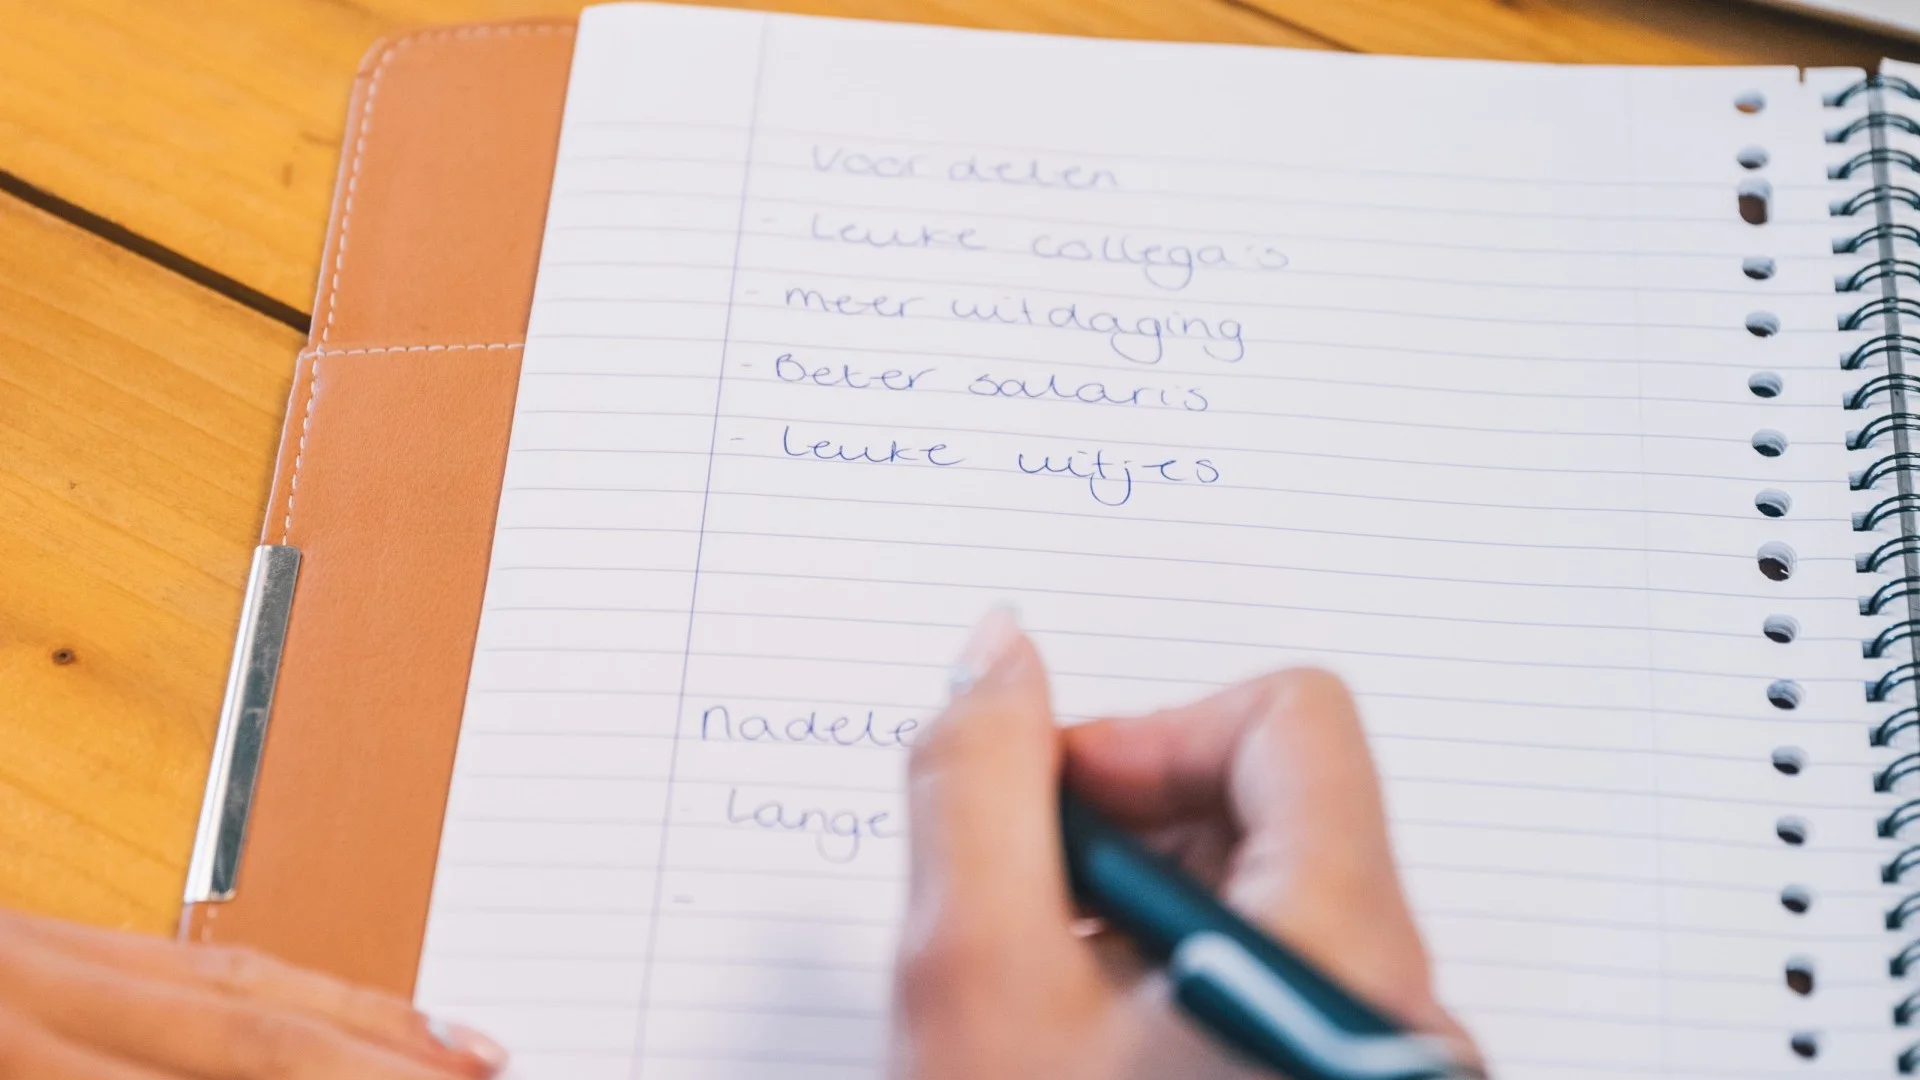 Voordelen
- Leuke collega's
- meer uitdaging
- Beter salaris
- Leuke uitjes
nadele
Lange
-